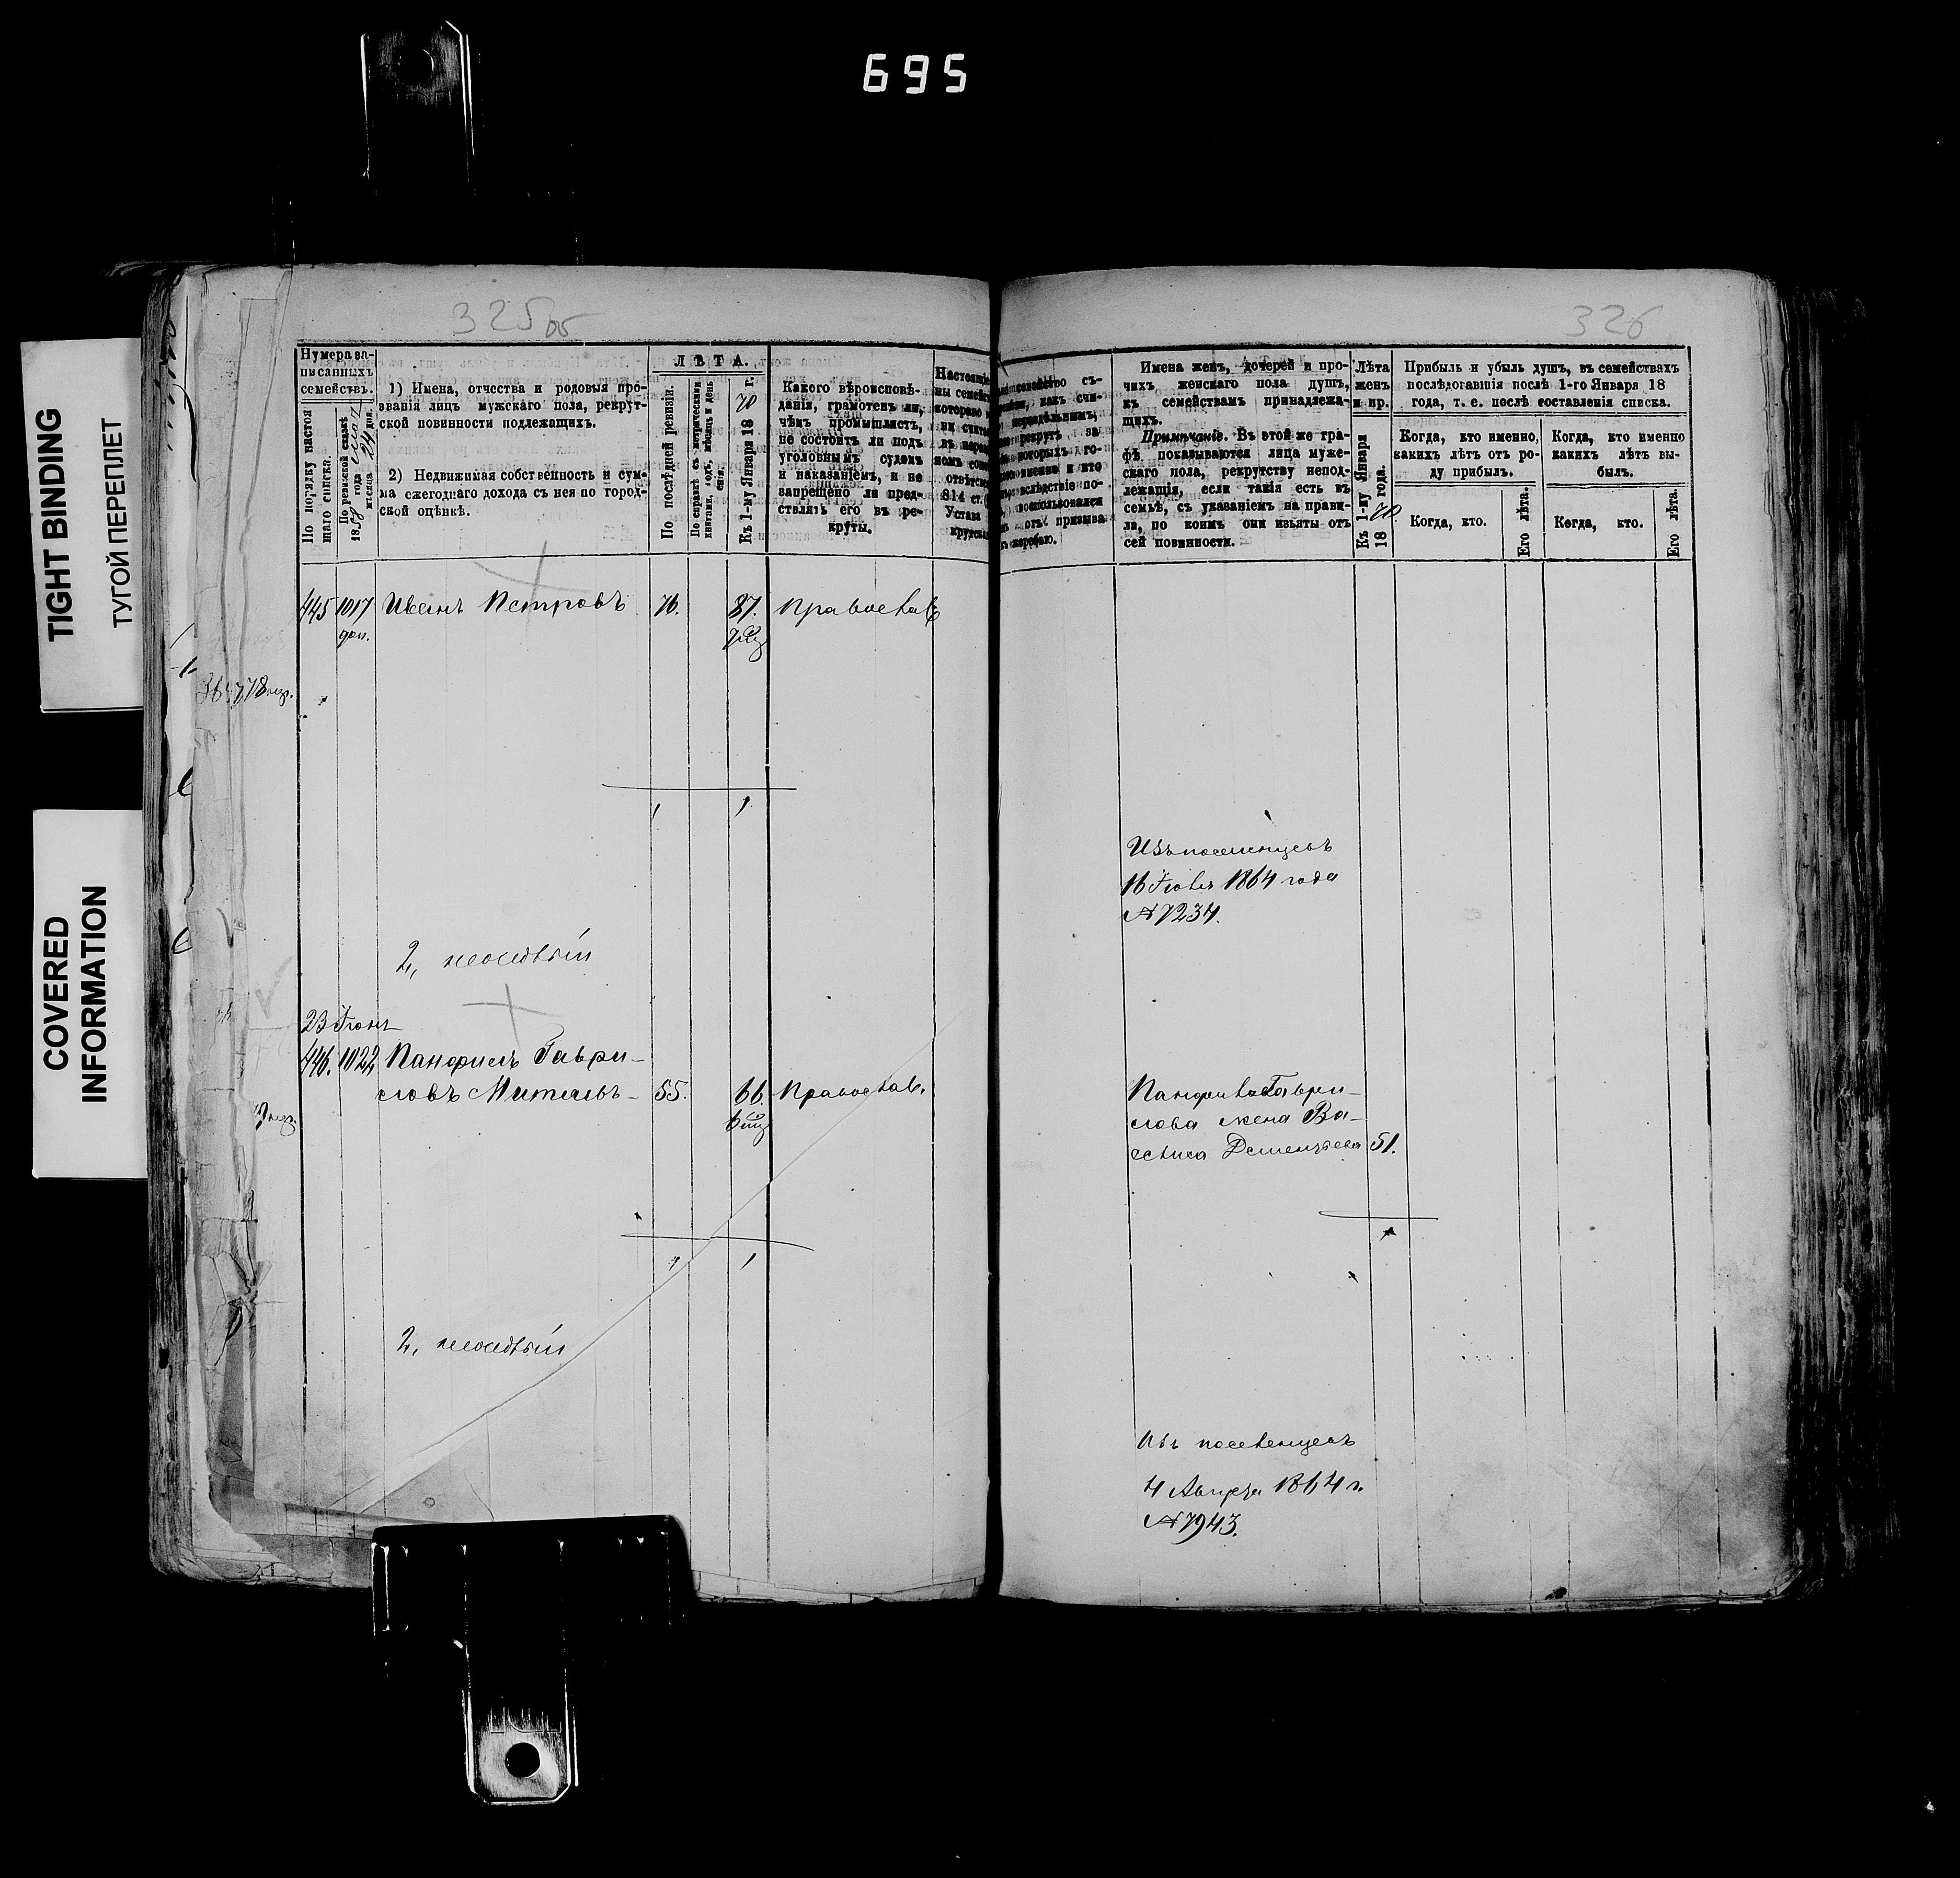 695
TIGHT BINDING
ТУГОЙ ПЕРЕПЛЕТ
COVERED
INFORMATION
325об
Нумера за-
писанныхъ
семействъ.
По порядку настоя
щаго списка.
По ревизской сказкѣ
1858 года мая
мѣсяца 24 дня.
1) Имена, отчества и родовыя про-
званія лицъ мужскаго пола, рекрут-
ской повинности подлежащихъ.
2) Недвижимая собственность и сум-
ма ежегоднаго дохода съ нея по город-
ской оцѣнкѣ.
ЛѢТА.
По послѣдней ревизіи.
По справкѣ съ метрическими
книгами, годъ, мѣсяцъ и день
Къ 1-му Января 1870 г.
Какого вѣроисповѣ-
данія, грамотенъ ли,
чѣмъ промышляетъ,
не состоитъ ли подъ
уголовнымъ судомъ
и наказаніемъ, и не
запрещено ли пред-
ставлять его въ ре-
круты.
445 1017 Иванъ Петровъ 76. 87. Православ
доп.
1 1
2, неосѣдлый
23 Іюня
446. 1022 Панфилъ Гаври-
ловъ 55. 66. Православ.
1 1
2, неосѣдлый
326
Имена женъ, дочерей и про-
чихъ женскаго пола душъ,
къ семействамъ принадлежа-
щихъ.
Примѣчаніе. Въ этой же гра-
фѣ показываются лица муже-
скаго пола, рекрутству непод-
лежащія, если такія есть въ
семьѣ, съ указаніемъ на прави-
ла, по коимъ они изъяты отъ
сей повинности.
Лѣта
женъ
и пр.
Къ 1-му Января
1870 года.
Прибыль и убыль душъ, въ семействахъ
послѣдовавшія послѣ 1-го Января 18
года, т. е. послѣ составленія списка.
Когда, кто именно,
какихъ лѣтъ отъ ро-
ду прибылъ.
Когда, кто именно
какихъ лѣтъ вы-
былъ.
Когда, кто.
Его лѣта.
Когда, кто.
Его лѣта.
Изъ поселенцевъ
16 Іюля 1864 года
№ 7234.
Панфила Гаври-
лова жена Ва-
силиса Дементьева 51.
1
Изъ поселенцевъ
4 Августа 1864 г.
№ 7943.